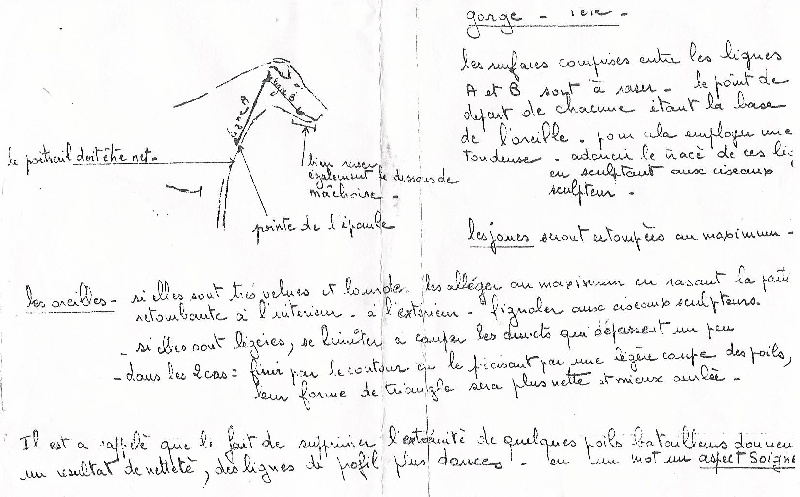 gorge -
les surfaces comprises entre les lignes
A et B sont à raser - le point de
depart de chacune étant la base
de l'oreille - pour cela employer une
tondeuse - adoucir le tracé de ces
en sculptant aux ciseaux
sculpteur -
ligne A
ligne B
le poitrail doit être net -
bien raser
également le dessous de
mâchoire -
pointe de l'épaule
les joues seront estompées au maximum -
les oreilles - si elles sont très velues et lourdes les alléger au maximum en rasant la
retombante à l'intérieur - à l'extérieur - fignoler aux ciseaux sculpteurs.
- si elles sont légères, se limiter a couper les duvets qui dépassent un peu
- dans les 2 cas : finir par le contour en le précisant par une légère coupe des poils,
leur forme de triangle sera plus nette et mieux ourlée -
Il est a rappelé que le fait de supprimer l'extrémité de quelques poils batailleurs
un résultat de netteté, des lignes de profil plus douces - en un mot un aspect Soigné